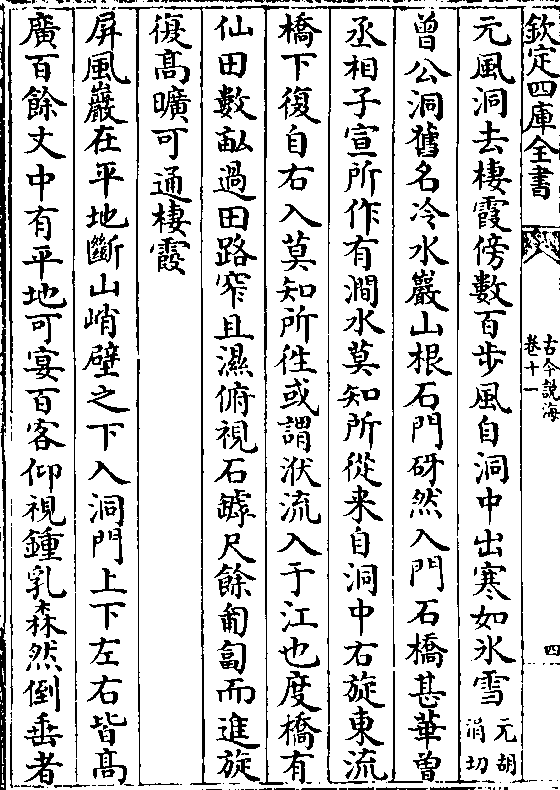 欽定四庫全書
古今說海
卷十一
四
元風洞去棲霞傍數百步風自洞中出寒如氷雪元胡
涓切
曾公洞舊名冷水巖山根石門砑然入門石橋甚華曾
丞相子宣所作有澗水莫知所從来自洞中右旋東流
橋下復自右入莫知所徃或謂洑流入于江也度橋有
仙田數畝過田路窄且濕俯視石罅尺餘匍匐而進旋
復髙曠可通棲霞
屏風巖在平地斷山峭壁之下入洞門上下左右皆髙
廣百餘丈中有平地可宴百客仰視鍾乳森然倒垂者